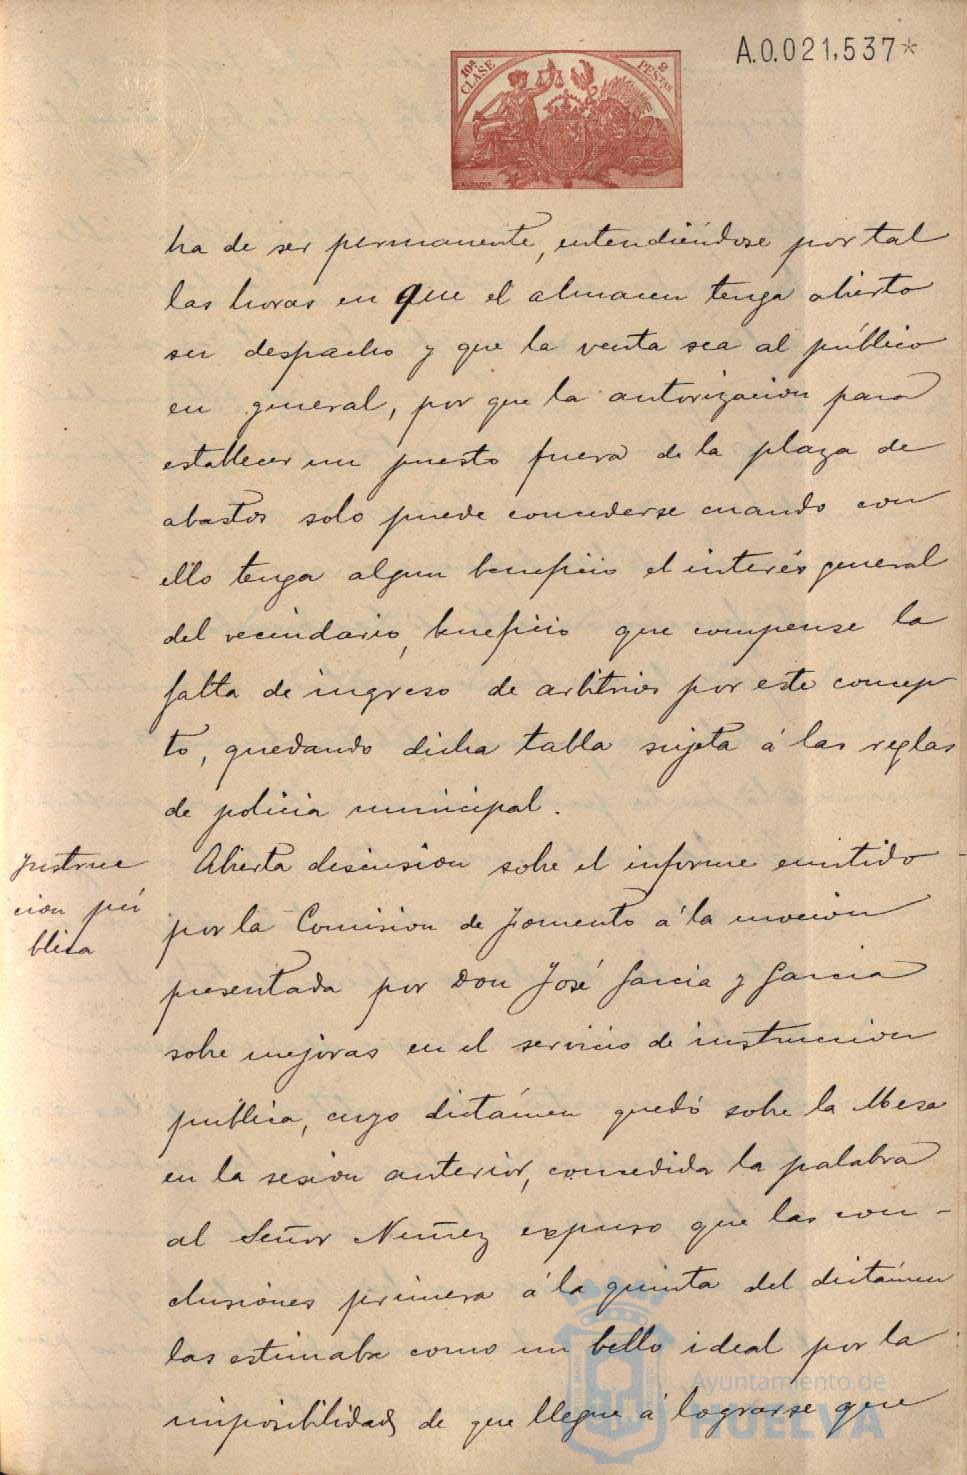 A.0.021,537*
10ª CLASE
2 PESTAS
ha de ser permanente, entendiéndose por tal
las horas en que el almacen tenga abierto
su despacho y que la venta sea al público
en general, por que la autorizacion para
establecer un puesto fuera de la plaza de
abastos solo puede concederse cuando con
ello tenga algun beneficio el interés general
del vecindario, beneficio que compense la
falta de ingreso de arbitrios por este concep
to, quedando dicha tabla sujeta á las reglas
de policia municipal.
Instruc
cion pú
blica
Abierta discusion sobre el informe emitido
por la Comision de Fomento á la mocion
presentada por Don José Garcia y Garcia
sobre mejoras en el servicio de instruccion
pública, cuyo dictámen quedó sobre la Mesa
en la sesion anterior, concedida la palabra
al Señor Nuñez expuso que las con-
clusiones primera á la quinta del dictámen
las estimaba como un bello ideal por la
imposibilidad de que llegue á lograrse que
Ayuntamiento de
HUELVA